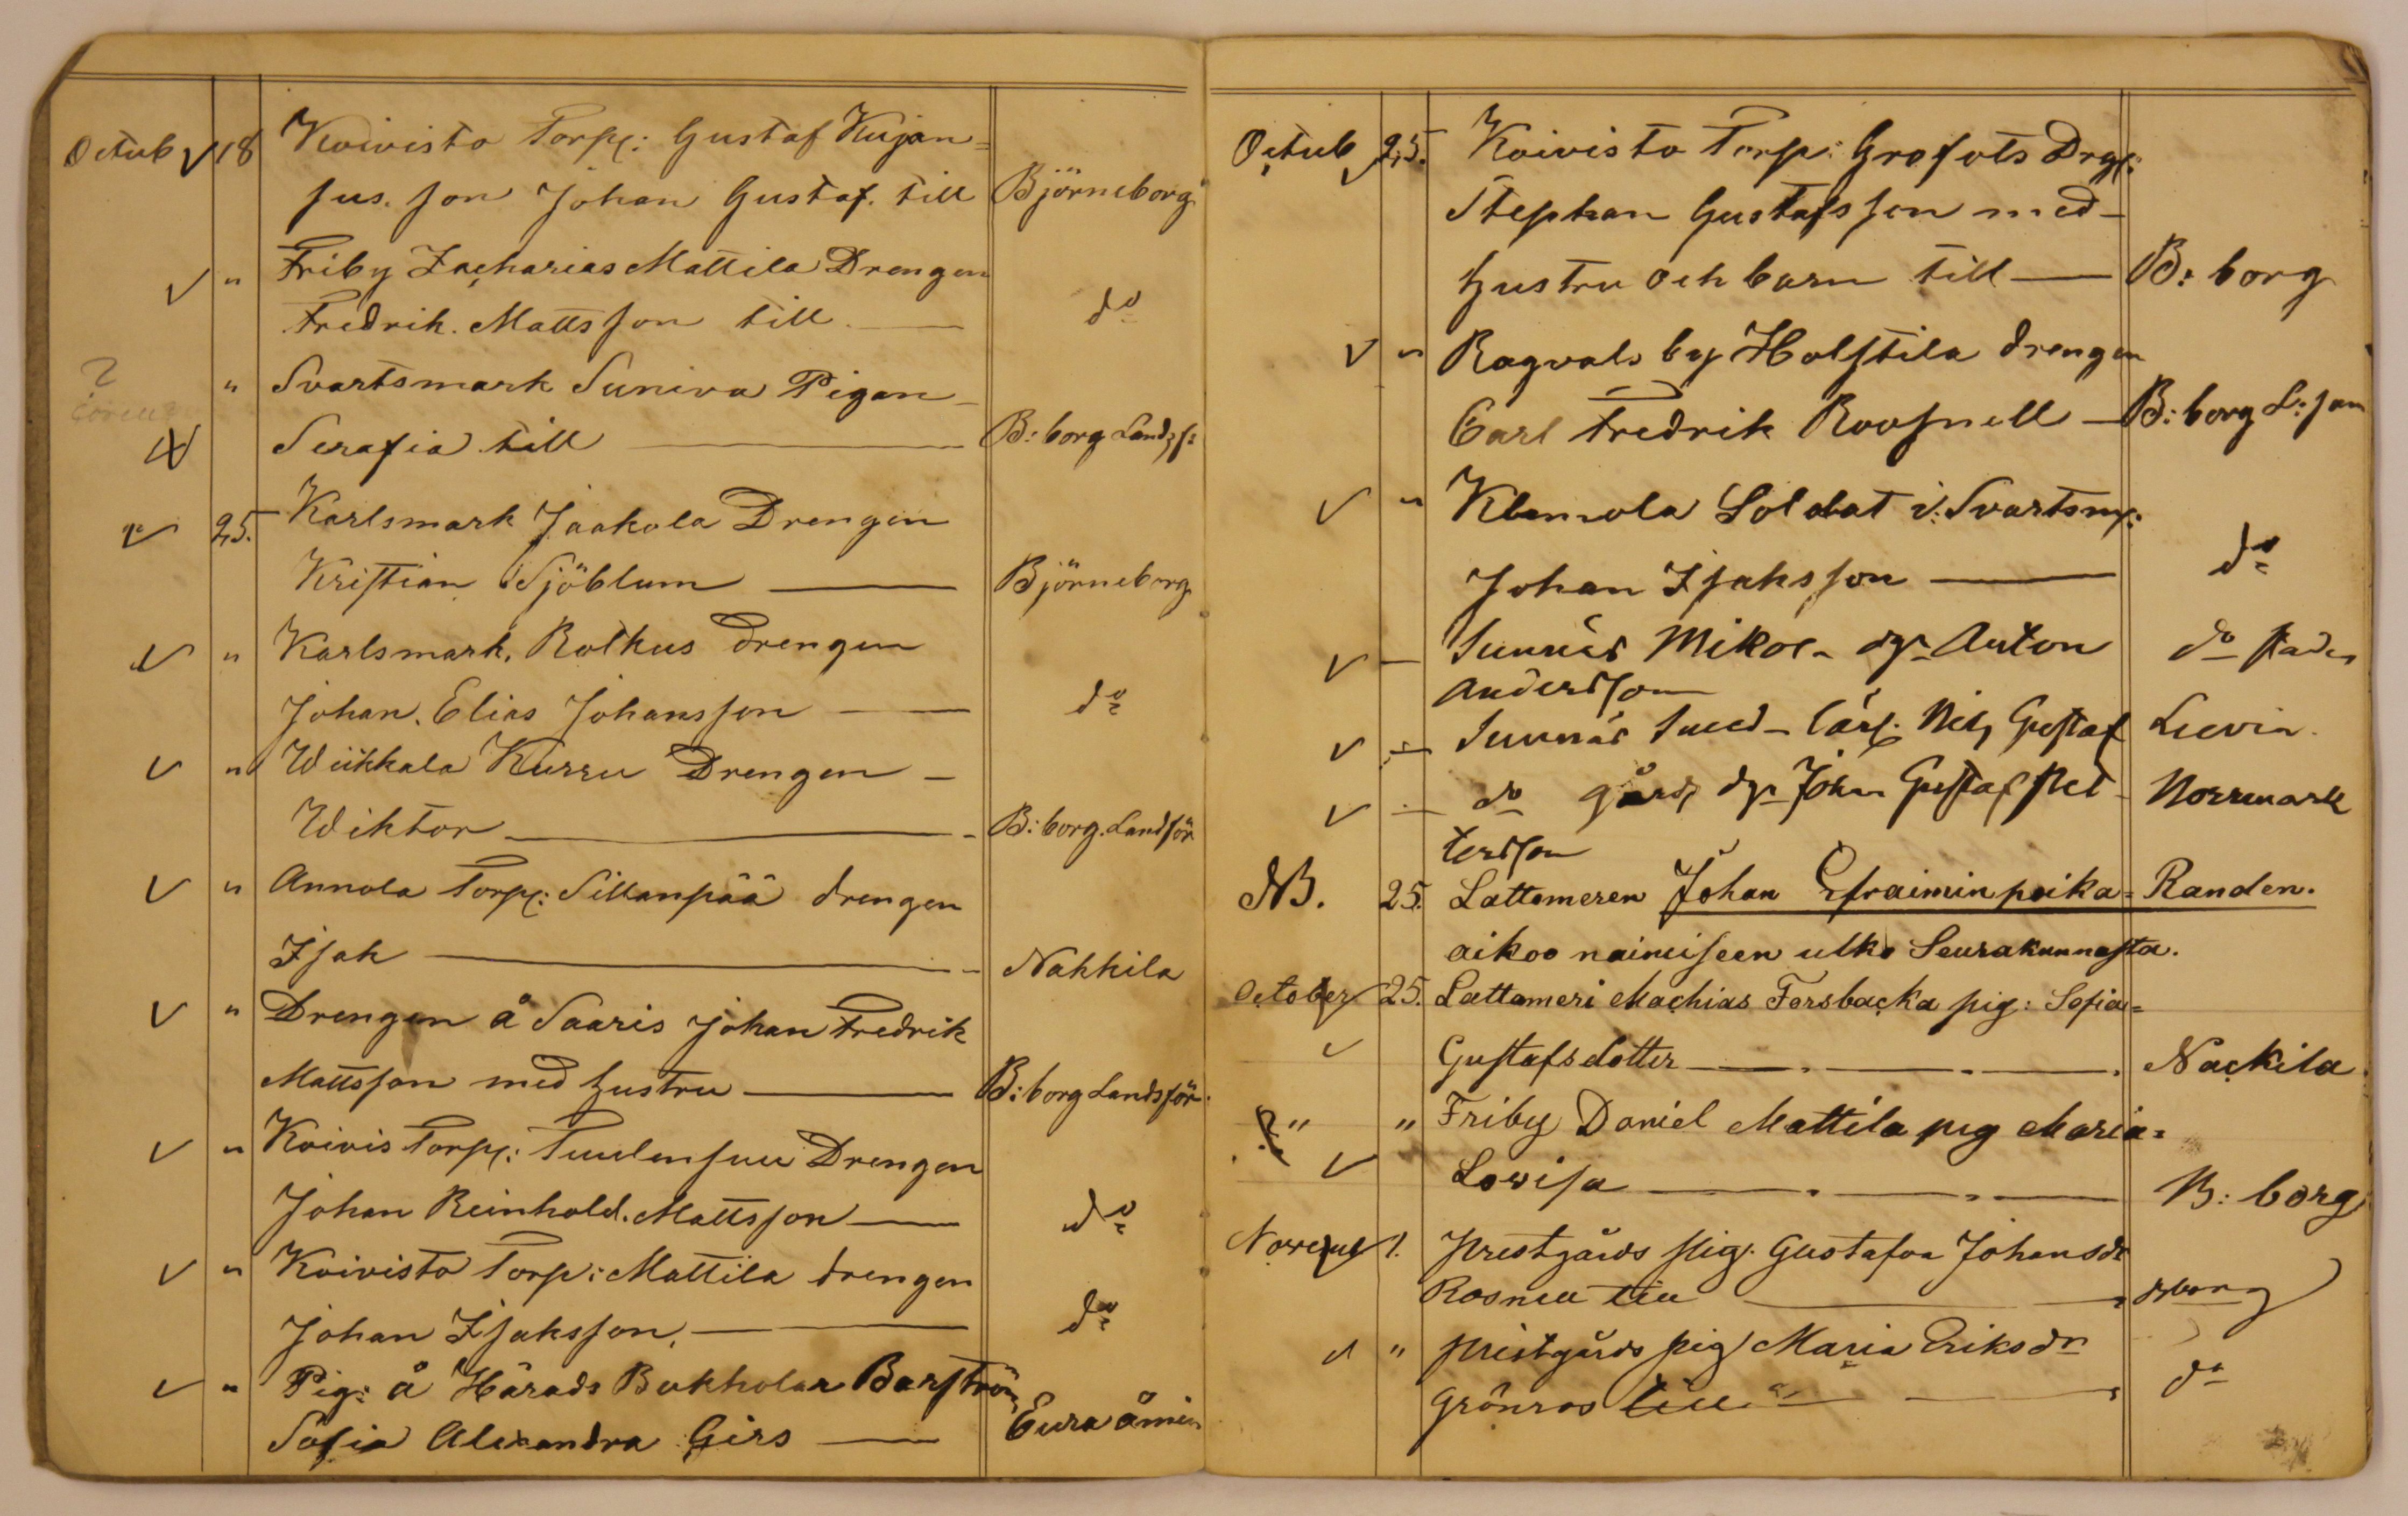 Octub 18 Koivisto Torp: Gustaf Kujan=
sus. son Johan Gustaf. till Björneborg
" Friby Zacharias Mattila Drengen
Fredrik. Mattsson till — do
?
" Svartsmark Suniva Pigan
Serafia till — B: borg Lands:
25. Karlsmark Jaakola Drengen
Kristian Sjöblum — Björneborg
" Karlsmark, Rolkus drengen
Johan. Elias Johansson — do
" Wiikkala Kurru Drengen —
Wiktor — B: borg. Landsför
" Annola Torp: Sillanpää drengen
Isak — Nakkila
" Drengen å Saaris Johan Fredrik
Mattsson med hustru — B: borg Landsför.
" Koivis Torp: Tuulensuu Drengen
Johan Reinhold. Mattsson — do
" Koivisto Torp: Mattila drengen
Johan Isaksson, — do
" Pig: å Härads Bokholar Barström
Sofia Alexandra Girs — Eura åmin
Octub 25. Koivisto Torp: Grofots Drg:
Stephan Gustafsson med
hustru och barn till — B: borg
" Ragvals by Holstila drengen
Carl Fredrik Roosnell — B: borg L: sam
" Klemola Soldat i: Svartsm:
Johan Isaksson — do
— Sunnäs Mikol dr Anton do
Andersson
— Sunnäs Smed — Nils Gustaf Luvia.
— do gårds dr Johan Gustaf Pet Norrmark
tersson
NB. 25. Lattomeren Johan Efraimin poika = Randen.
aikoo naimiseen ulko Seurakunnasta.
October 25. Lattomeri Machias Forsbacka pig: Sofia=
Gustafsdotter — Nackila
" " Friby Daniel Mattila pig Maria=
Lovisa — B: borg
1. Prestgårds pig. Gustafva Johansdr
Rosnell till — borg
" Prestgårds pig Maria Eriksdr
Grönros till — do